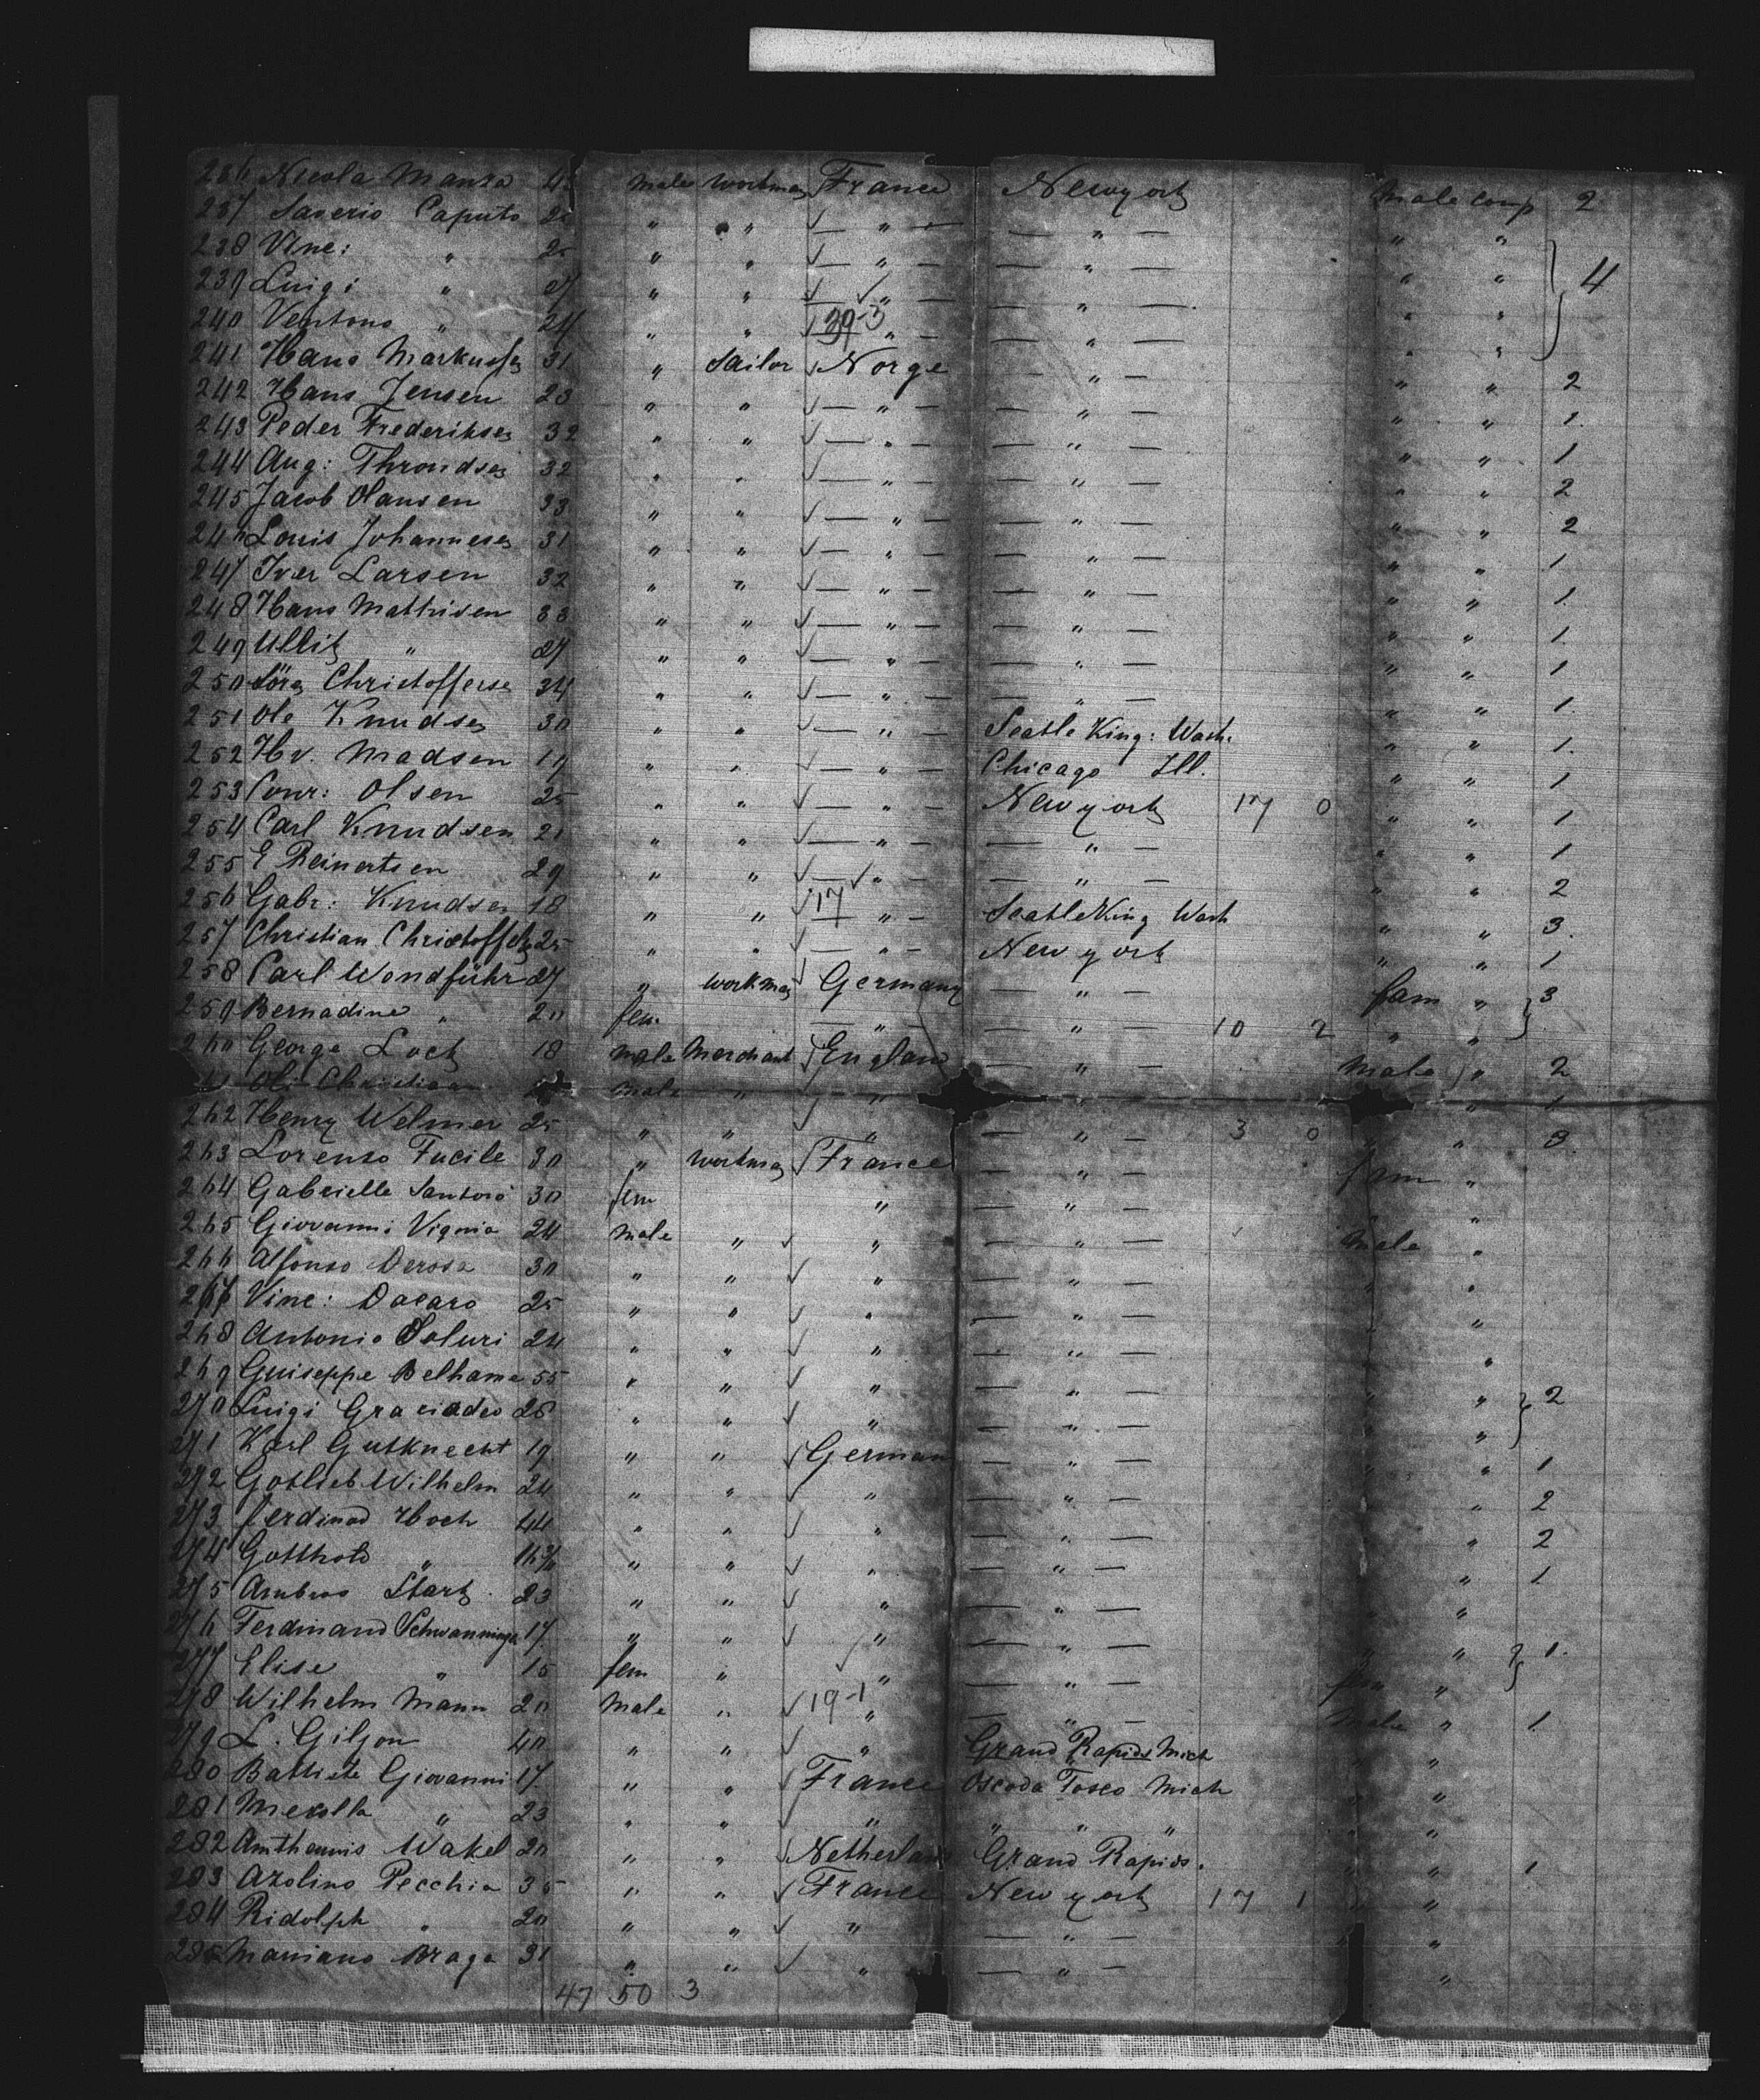 236 Nicola Manza 4 male workman France Newyork Male comp 2
237 Saverio Caputo 2 " " ✓ — " — — " — " "
238 Vinc: " 25 " " ✓ — " — — " — " " } 4
239 Luigi " 27 " " ✓ — ✓ " — — " — " "
240 Ventono " 24 " " ✓ 39-3 " — — " — " "
241 Hans Markussen 31 " Sailor ✓ Norge — " — " " 2
242 Hans Jensen 23 " " ✓ — " — — " — " " 1.
243 Peder Frederiksen 32 " " ✓ — " — — " — " " 1
244 Aug: Throndsen 32 " " ✓ — " — — " — " " 2
245 Jacob Hansen 33 " " ✓ — " — — " — " " 2
246 Louis Johannesen 31 " " ✓ — " — — " — " " 1
247 Iver Larsen 32 " " ✓ — " — — " — " " 1.
248 Hans Mathisen 33 " " ✓ — " — — " — " " 1.
249 Ullik " 27 " " ✓ — " — — " — " " 1
250 Sören Christoffersen 34 " " ✓ — " — — " — " " 1.
251 Ole Knudsen 30 " " ✓ — " — Seatle King: Wash. " " 1.
252 Hv. Madsen 19 " " ✓ — " — Chicago Ill. " " 1
253 Conr: Olsen 25 " " ✓ — " — Newyork 17 0 " " 1
254 Carl Knudsen 21 " " ✓ — " — — " — " " 1
255 E Reinertsen 29 " " ✓ — ✓ " — — " — " " 2
256 Gabr: Knudsen 18 " " ✓ 17 " — Seatle King Wash " " 3.
257 Christian Christoffersen 25 " " ✓ — " — Newyork " " 1
258 Carl Wondführ 27 " workman ✓ Germany — " — fam " } 3
259 Bernadine " 20 fem. — " — — " — 10 2 " "
260 George Lock 18 male Merchant ✓ England — " — Male " 2
Ole Christian male " ✓ " " " 1
262 Henry Welmer 25 " " ✓ " — " — 3 0 " " 3
263 Lorenzo Fucile 30 " workman ✓ France — " — fam "
264 Gabrielle Santoro 30 fem " — " — "
265 Giovanni Vignia 24 male " ✓ " — " — male "
266 Alfonso Derosa 30 " " ✓ " — " — " "
267 Vinc: Dacaro 25 " " ✓ " — " — " "
268 Antonio Soluri 24 " " ✓ " — " — "
269 Guiseppe Belhame 55 " " ✓ " — " — " " } 2
270 Luigi Graciadeo 26 " " ✓ " — " — " "
271 Karl Gutknecht 19 " " ✓ German — " — " " 1
272 Gotlieb Wilhelm 24 " " ✓ " — " — " 2
273 Ferdinad Hoch 44 " " ✓ " — " — " 2
274 Gotthold " 16 " " ✓ " — " — " 1
275 Ambros Stark 23 " " ✓ " — " — " "
276 Ferdinand Schwanninger 17 " " ✓ " — " — " " } 1.
277 Elise " 15 fem " ✓ " — " — fem "
278 Wilhelm Mann 20 male " ✓ 19-1 " — " — male " 1
279 L. Giljon 40 " " ✓ " Grand Rapids Mich " "
280 Battiste Giovanni 17. " " ✓ France Oscoda Iosco Mich " "
281 " 23 " " ✓ " " " " " "
282 Wakel 20 " " ✓ Netherlands Grand Rapids. " " 1
283 Azolino Pecchia 35 " " ✓ France New york 17 1 " "
284 Ridolph " 20 " " ✓ " — " — " "
285 Mariano Braga 31 " " ✓ " — " — "
47 50 3